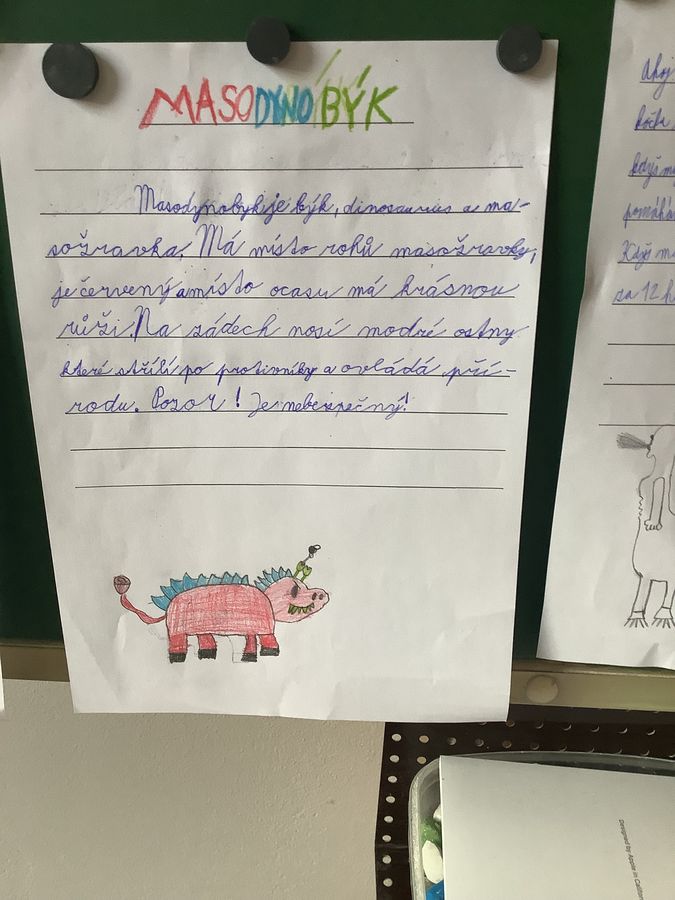 MASODYNOBÝK
Masodynobyk je býk, dinosaurus a ma-
sožravka. Má místo rohů masožravky,
je červený a místo ocasu má krásnou
růži. Na zádech nosí modré ostny
které střílí po protivníky a ovládá pří-
rodu. Pozor! Je nebezpečný!
Ahoj
kočk
když m
pomáha
Když m
za 12 h
Designed by Apple in Californ